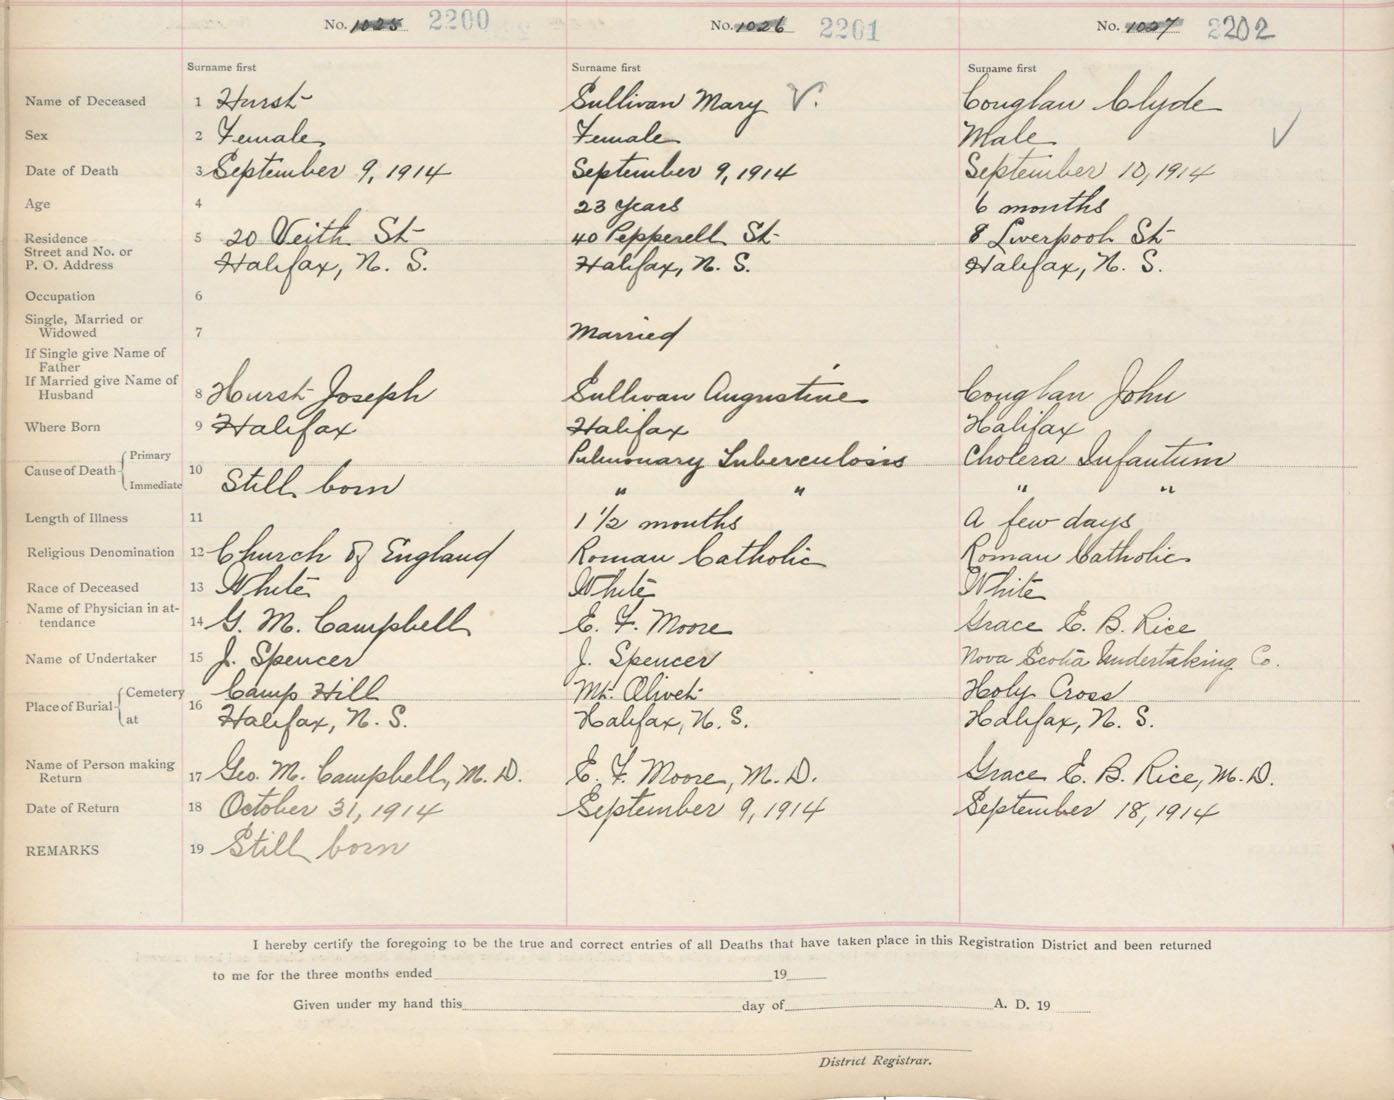 No. 1025 2200 No. 1026 2201 No. 1027 2202
Surname first Surname first Surname first
Name of Deceased 1 Hurst Sullivan Mary V. Coughlan Clyde
Sex 2 Female Female Male
Date of Death 3 September 9, 1914 September 9, 1914 September 10, 1914
Age 4 23 years 6 months
Residence 5 20 Veith St 40 Pepperell St 8 Liverpool St
Street and No. or
P. O. Address Halifax, N. S. Halifax, N. S. Halifax, N. S.
Occupation 6
Single, Married or
Widowed 7 Married
If Single give Name of
Father
If Married give Name of
Husband 8 Hurst Joseph Sullivan Augustine Coughlan John
Where Born 9 Halifax Halifax Halifax
Primary Pulmonary Tuberculosis Cholera Infantum
Cause of Death 10
Immediate Still born " " " "
Length of Illness 11 1 1/2 months A few days
Religious Denomination 12 Church of England Roman Catholic Roman Catholic
Race of Deceased 13 White White White
Name of Physician in at-
tendance 14 G. M. Campbell E. F. Moore Grace E. B. Rice
Name of Undertaker 15 J. Spencer J. Spencer Nova Scotia Undertaking Co.
Cemetery Camp Hill Mt. Olivet Holy Cross
Place of Burial 16
at Halifax, N. S. Halifax, N. S. Halifax, N. S.
Name of Person making
Return 17 Geo. M. Campbell, M. D. E. F. Moore, M. D. Grace E. B. Rice, M. D.
Date of Return 18 October 31, 1914 September 9, 1914 September 18, 1914
REMARKS 19 Still born
I hereby certify the foregoing to be the true and correct entries of all Deaths that have taken place in this Registration District and been returned
to me for the three months ended 19
Given under my hand this day of A. D. 19
District Registrar.